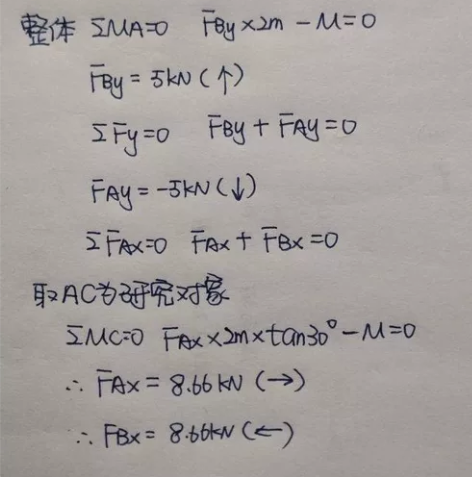 整体 ΣMA=0 F̄By×2m-M=0
F̄By=5kN(↑)
ΣF̄y=0 F̄By+F̄Ay=0
F̄Ay=-5kN(↓)
ΣF̄Ax=0 F̄Ax+F̄Bx=0
取AC为研究对象
ΣMC=0 F̄Ax×2m×tan30°-M=0
∴ F̄Ax=8.66kN(→)
∴ FBx=8.66kN(←)